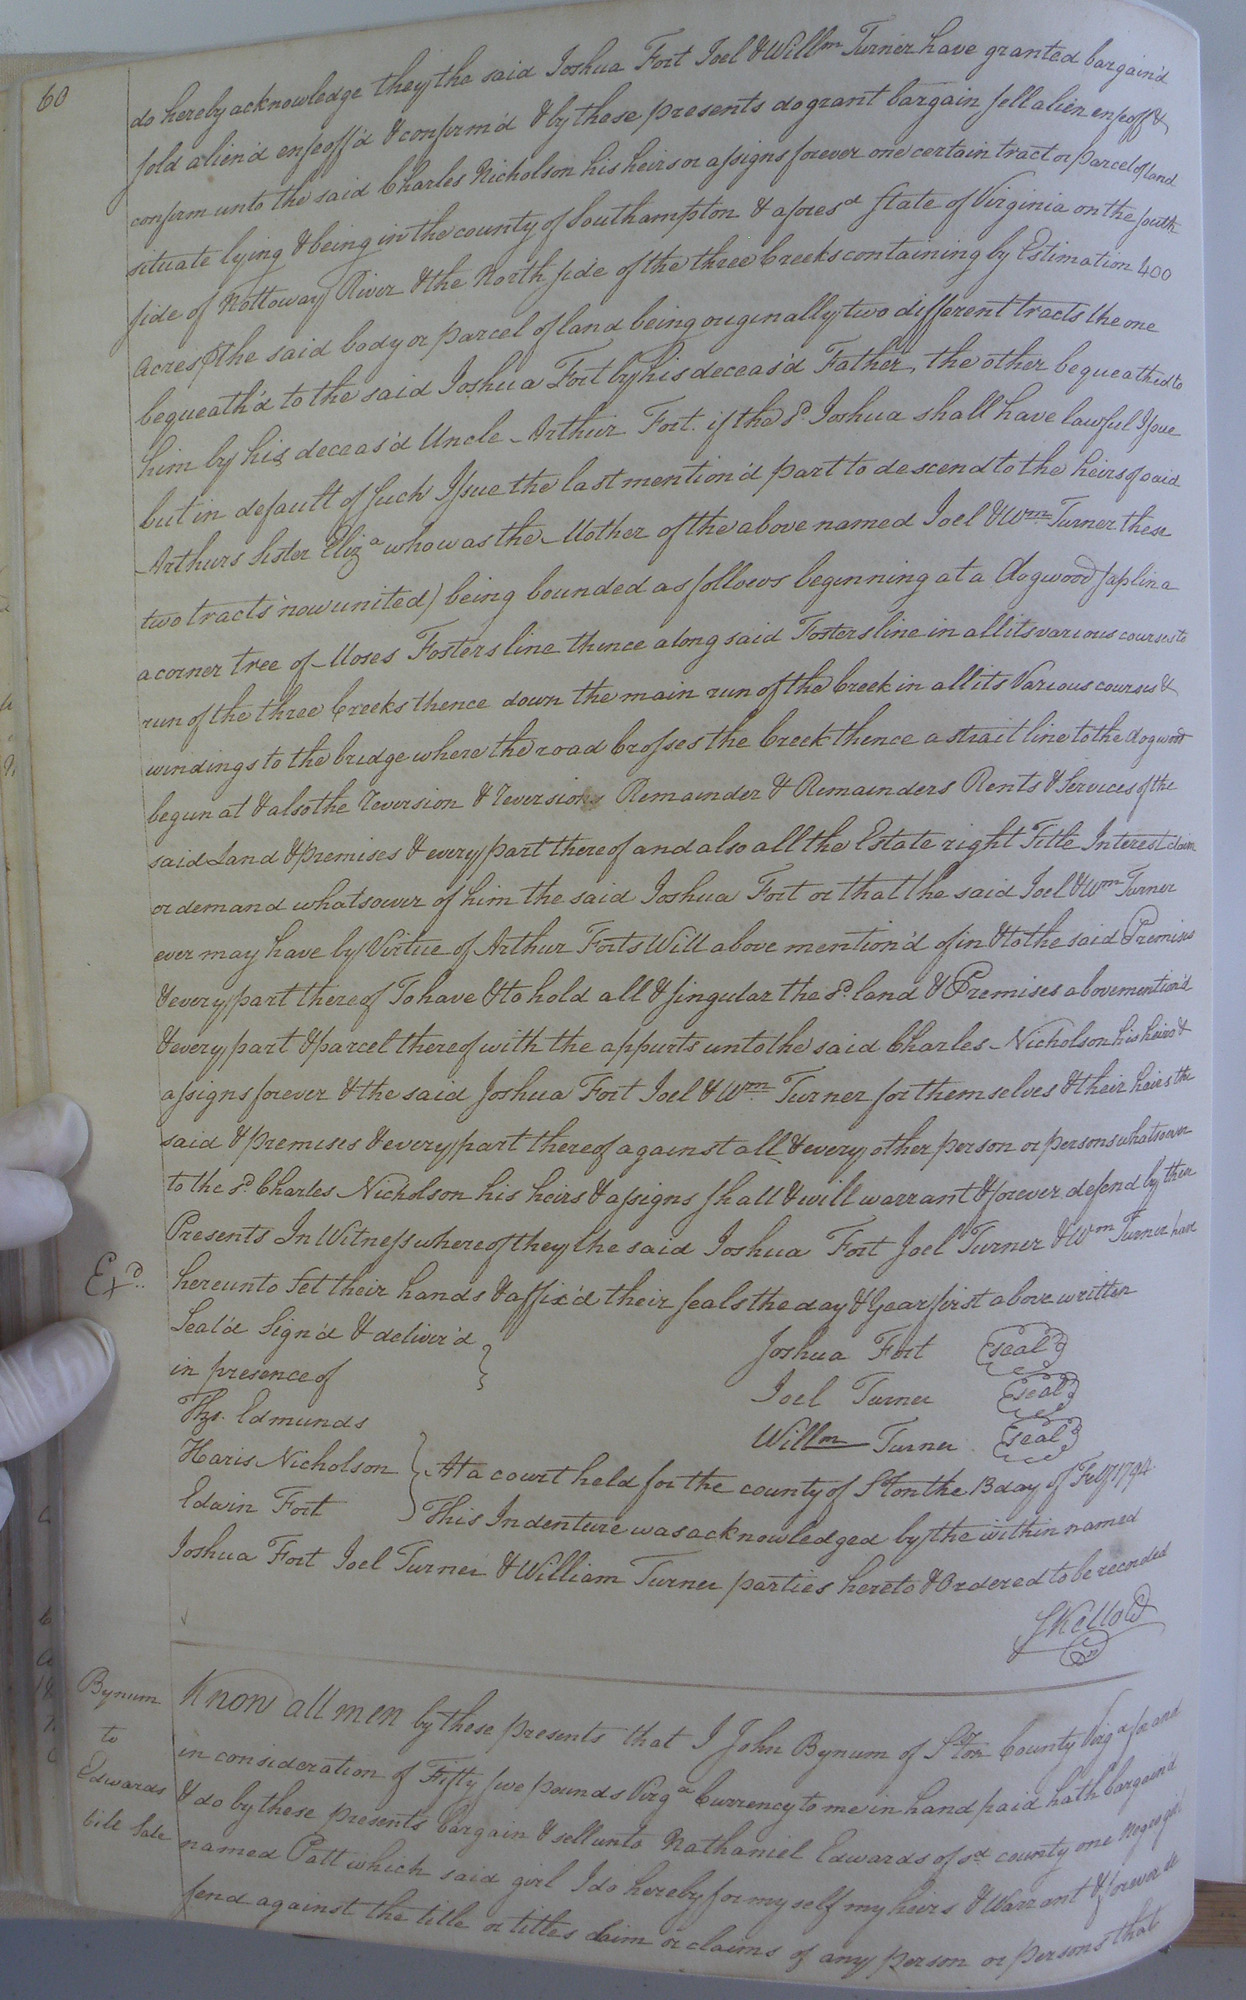 60
do hereby acknowledge they the said Joshua Fort Joel & Willm Turner have granted bargain'd
sold alien'd enfeoff'd & confirm'd & by these presents do grant bargain sell alien enfeoff &
confirm unto the said Charles Nicholson his heirs or assigns forever one certain tract or parcel of land
situate lying & being in the county of Southampton & aforesd State of Virginia on the south
side of Nottoway River & the North side of the three Creeks containing by Estimation 400
acres (the said body or parcel of land being originally two different tracts the one
bequeath'd to the said Joshua Fort by his deceas'd Father, the other bequeathed to
him by his deceas'd Uncle Arthur Fort. if the sd. Joshua shall have lawful Issue
but in default of such Issue the last mention'd part to descend to the heirs of said
Arthurs sister Eliza who was the Mother of the above named Joel & Wm Turner these
two tracts now united) being bounded as follows beginning at a dogwood saplin a
a corner tree of Moses Fosters line thence along said Fosters line in all its various courses to
run of the three Creeks thence down the main run of the Creek in all its Various courses &
windings to the bridge where the road Crosses the Creek thence a strait line to the dogwood
begun at & also the Reversion & Reversions Remainder & Remainders Rents & Services of the
said Land & premises & every part thereof and also all the Estate right Title Interest claim
or demand whatsoever of him the said Joshua Fort or that the said Joel & Wm Turner
ever may have by Virtue of Arthur Forts Will above mention'd of in & to the said Premises
& every part thereof To have & to hold all & singular the sd. land & Premises abovemention'd
& every part & parcel thereof with the appurts unto the said Charles Nicholson his heirs &
assigns forever & the said Joshua Fort Joel & Wm Turner for themselves & their heirs the
said & premises & every part thereof against all & every other person or persons whatsoever
to the sd. Charles Nicholson his heirs & assigns shall & will warrant & forever defend by their
Presents In Witness whereof they the said Joshua Fort Joel Turner & Wm Turner have
Exd.
hereunto set their hands & affix'd their seals the day & Year first above written
Seal'd Sign'd & deliver'd
in presence of
Joshua Fort seal
Joel Turner seal
Ths. Edmunds
Willm Turner seal
Haris Nicholson
At a court held for the county of Ston the 13 day of Feby 1794
Edwin Fort
This Indenture was acknowledged by the within named
Joshua Fort Joel Turner & William Turner parties hereto & Ordered to be recorded
S Kello Cl
Bynum
to
Edwards
bill Sale
Know all men by these presents that I John Bynum of Ston County Virga for and
in consideration of Fifty five pounds Virga Currency to me in hand paid hath bargain'd
& do by these presents bargain & sell unto Nathaniel Edwards of sd county one Negro girl
named Patt which said girl I do hereby for my self my heirs & Warrant & forever de
fend against the title or titles claim or claims of any person or persons that